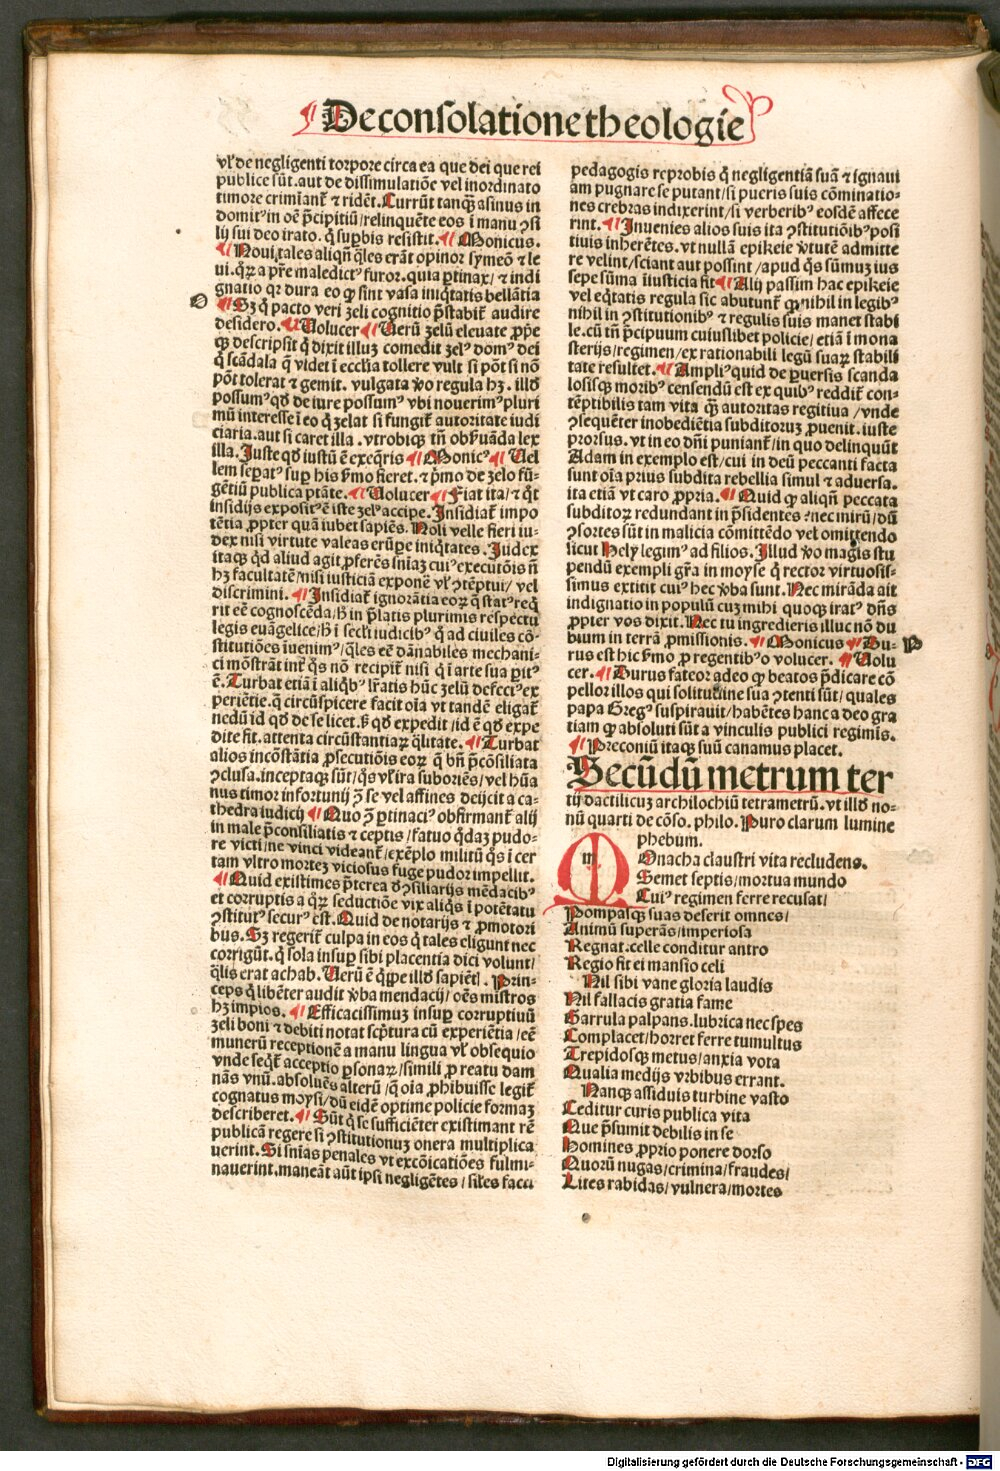 De consolatione theologie
vl̕ de negligenti torpore circa ea que dei que rei
publice sūt. aut de dissimulatiōe vel inordinato
timore crimīant᷑ ⁊ ridēt. Currūt tanqꝫ asinus in
domitꝰ in oē p̄cipitiū / relinquēte eos ī manu ꝯsi
lij sui deo irato. q̇ supbis resistit. ¶ Monicus.
¶ Noui tales aliqn̄ q̄les erāt opinor symeō ⁊ le
ui. qꝛ a pr̄e maledictꝰ furor. quia ꝑtinax / ⁊ indi
gnatio qꝛ dura eo ꝙ sint vasa iniq̇tatis bellātia
O
¶ Sꝫ q̇ pacto veri zeli cognitio p̄stabit᷑ audire
desidero. ¶ Uolucer ¶ Uerū zelū eleuate ꝓp̄e
qꝫ descripsit q̇ dixit illuꝫ comedit zelꝰ domꝰ dei
q̇ scādala q̄ videt ī ecclīa tollere vult si pōt si nō
pōt tolerat ⁊ gemit. vulgata v̓o regula hꝫ. illd̓
possumꝰ qd̓ de iure possumꝰ vbi nouerimꝰ pluri
mū interesse ī eo q̇ zelat si fungit᷑ autoritate iudi
ciaria. aut si caret illa. vtrobiqꝫ tn̄ obẜuāda lex
illa. Iuste qd̓ iustū ē exeq̄ris ¶ Monicꝰ ¶ Uel
lem seꝑatꝰ suꝑ his ẜmo fieret. ⁊ pͥmo de zelo fū-
gētiū publica ptāte. ¶ Uolucer ¶ Fiat ita / ⁊ q̇t
insidijs expositꝰ ē iste zelꝰ accipe. Insidiat᷑ impo
tētia ꝓpter quā iubet sapiēs. Noli velle fieri iu-
dex nisi virtute valeas erūꝑe iniq̇tates. Iudex
itaqꝫ qd̓ aliud agit ꝓferēs sn̄iaꝫ cuiꝰ executōis n̄
hꝫ facultatē / nisi iusticiā exponē vl̕ ꝯtēptui / vel
discrimini. ¶ Insidiat᷑ ignorātia eoꝝ q̇ statꝰ req̇
rit eē cognoscēda / ꝉn ī p̄latis plurimis respectu
legis euāgelice / ꝉn ī sec̄li iudicibꝰ q̇ ad ciuiles cō-
stitutiōes īuenimꝰ / q̄les eē dānabiles mechani-
ci mōstrāt int᷑ q̇s nō recipit᷑ nisi q̇ ī arte sua ꝑitꝰ
ē. Turbat etiā ī aliq̇bꝰ lr̄atis hūc zelū defectꝰ ex
periētie. q̄ circūspicere facit oīa vt tandē eligat᷑
nedū id qd̓ de se licet. sꝫ qd̓ expedit / id ē qd̓ expe
dite fit. attenta circūstantiaꝝ q̄litate. ¶ Turbat
alios incōstātia ꝓsecutiōis eoꝝ q̄ bn̄ p̄cōsiliata
ꝯclusa. inceptaqꝫ sūt / q̇s vl̕ ira suboriēs / vel hūa
nus timor infortunij ꝯ̄ se vel affines deijcit a ca-
thedra iudicij ¶ Quo ꝯ̄ ꝑtinaciꝰ obfirmant᷑ alij
in male p̄consiliatis ⁊ ceptis / fatuo q̇daꝫ pudo-
re victi / ne vinci videant᷑ / exēplo militū q̇s ī cer
tam vltro morteꝫ viciosus fuge pudor impellit.
¶ Quid existimes p̄terea d̓ ꝯsiliarijs mēdacibꝰ
et corruptis a qꝝ seductiōe vix aliq̇s ī potētatu
ꝯstitutꝰ securꝰ est. Quid de notarijs ⁊ ꝓmotori
bus. Sꝫ regerit᷑ culpa in eos q̇ tales eligunt nec
corrigūt. q̇ sola insuꝑ sibi placentia dici volunt /
q̄lis erat achab. Uerū ē q̇ppe illd̓ sapiētl̓. Prin-
ceps q̇ libēter audit v̓ba mendacij / oēs mīstros
hꝫ impios. ¶ Efficacissimuꝫ insuꝑ corruptiuū
zeli boni ⁊ debiti notat scp̄tura cū experiētia / eē
munerū receptionē a manu lingua vl̕ obsequio
vnde seq̇t᷑ acceptio ꝑsonaꝝ / simili ꝓ reatu dam
nās vnū. absoluēs alterū / q̄ oīa ꝓhibuisse legit᷑
cognatus moysi / dū eidē optime policie formaꝫ
describeret. ¶ Sūt q̇ se sufficiēter existimant rē
publicā regere si ꝯstitutionuꝫ onera multiplica
uerint. Si sn̄ias penales vt excōicatiōes fulmi-
nauerint. maneāt aūt ipsi negligētes / sil̕es facti
pedagogis reprobis q̇ negligentiā suā ⁊ ignaui
am pugnare se putant / si pueris suis cōminatio-
nes crebras indixerint / si verberibꝰ eosdē affece
rint. ¶ Inuenies alios suis ita ꝯstitutiōibꝰ posi
tiuis inherētes. vt nullā epikeie v̓tutē admitte
re velint / sciant aut possint / apud q̇s sūmuꝫ ius
sepe sūma īiusticia fit ¶ Alij passim hac epikeie
vel eq̇tatis regula sic abutunt᷑ ꝙ nihil in legibꝰ
nihil in ꝯstitutionibꝰ ⁊ regulis suis manet stabi
le. cū tn̄ p̄cipuum cuiuslibet policie / etiā ī mona
sterijs / regimen / ex rationabili legū suaꝝ stabili
tate resultet. ¶ Ampliꝰ quid de ꝑuersis scanda
losisqꝫ moribꝰ censendū est ex quibꝰ reddit᷑ con-
tēptibilis tam vita qꝫ autoritas regitiua / vnde
ꝯsequēter inobediētia subditoruꝫ ꝓuenit. iuste
prorsus. vt in eo dn̄i puniant᷑ / in quo delinquūt
Adam in exemplo est / cui in deū peccanti facta
sunt oīa prius subdita rebellia simul ⁊ aduersa.
ita etiā vt caro ꝓpria. ¶ Quid ꝙ aliqn̄ peccata
subditoꝝ redundant in p̄sidentes: nec mirū / dū
ꝯsortes sūt in malicia cōmittēdo vel omittendo
sicut Hely legimꝰ ad filios. Illud v̓o magis stu
pendū exempli gr̄a in moyse q̇ rector virtuosis-
simus extitit cuiꝰ hec v̓ba sunt. Nec mirāda ait
indignatio in populū cuꝫ mihi quoqꝫ iratꝰ dn̄s
ꝓpter vos dixit. Nec tu ingredieris illuc nō du
bium in terrā ꝓmissionis. ¶ Monicus ¶ Du-
P
rus est hic ẜmo ꝓ regentibꝰ o volucer. ¶ Uolu
cer. ¶ Durus fateor adeo ꝙ beatos p̄dicare cō
pellor illos qui solitudine sua ꝯtenti sūt / quales
papa Gregꝰ suspirauit / habētes hanc a deo gra
tiam ꝙ absoluti sūt a vinculis publici regimīs.
¶ Preconiū itaqꝫ suū canamus placet.
Secūdū metrum ter
tij dactilicuꝫ archilochiū tetrametrū. vt illd̓ no-
nū quarti de cōso. philo. Puro clarum lumine
phebum.
M
Onacha claustri vita recludens.
Semet septis / mortua mundo
Cuiꝰ regimen ferre recusat /
Pompasqꝫ suas deserit omnes /
Animū superās / imperiosa
Regnat. celle conditur antro
Regio fit ei mansio celi
Nil sibi vane gloria laudis
Nil fallacis gratia fame
Garrula palpans. lubrica nec spes
Complacet / horret ferre tumultus
Trepidosqꝫ metus / anxia vota
Qualia medijs vrbibus errant.
Nanqꝫ assiduis turbine vasto
Ceditur curis publica vita
Que p̄sumit debilis in se
Homines ꝓprio ponere dorso
Quorū nugas / crimina / fraudes /
Lites rabidas / vulnera / mortes
Digitalisierung gefördert durch die Deutsche Forschungsgemeinschaft - DFG